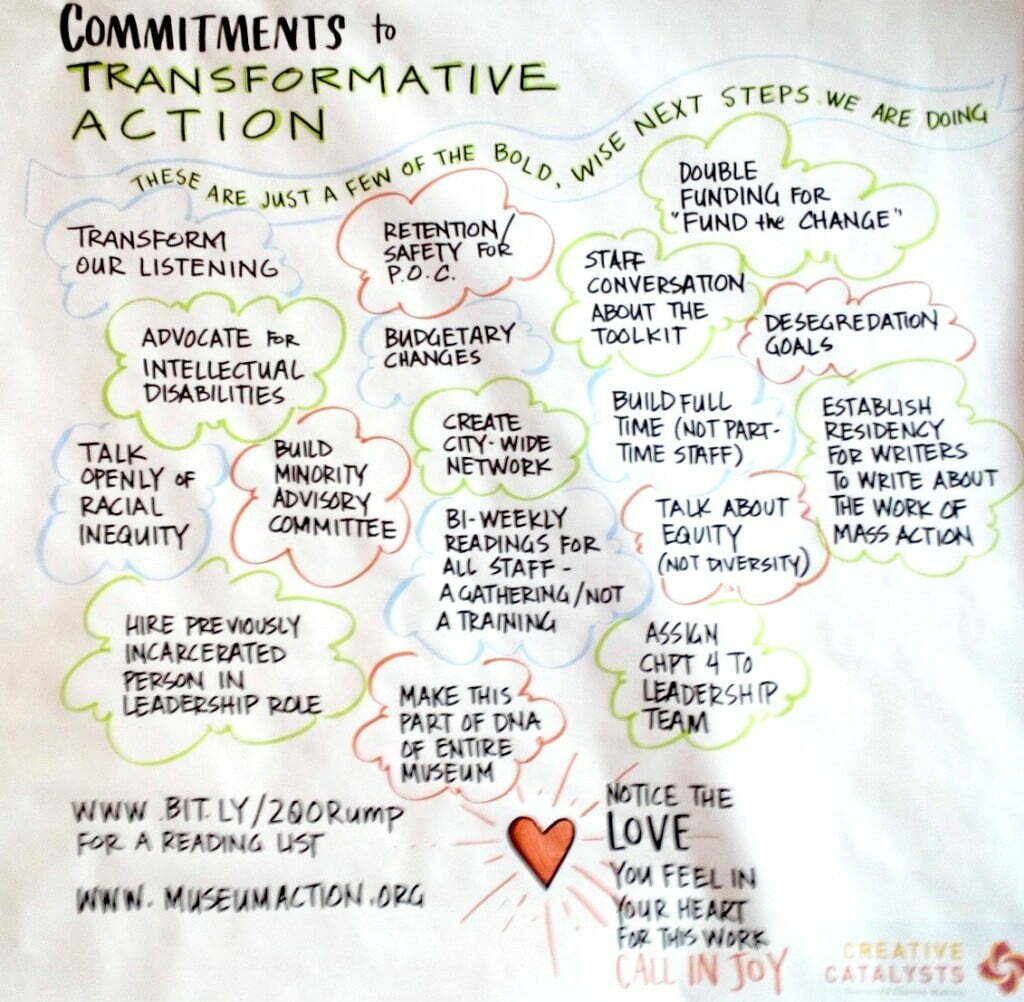 COMMITMENTS to
TRANSFORMATIVE
ACTION
THESE ARE JUST A FEW OF THE BOLD, WISE NEXT STEPS WE ARE DOING
DOUBLE
FUNDING FOR
"FUND the CHANGE"
TRANSFORM
OUR LISTENING
RETENTION/
SAFETY FOR
P.O.C.
STAFF
CONVERSATION
ABOUT THE
TOOLKIT
DESEGREDATION
GOALS
ADVOCATE FOR
INTELLECTUAL
DISABILITIES
BUDGETARY
CHANGES
BUILD FULL
TIME (NOT PART-
TIME STAFF)
ESTABLISH
RESIDENCY
FOR WRITERS
TO WRITE ABOUT
THE WORK OF
MASS ACTION
CREATE
CITY-WIDE
NETWORK
TALK
OPENLY OF
RACIAL
INEQUITY
BUILD
MINORITY
ADVISORY
COMMITTEE
BI-WEEKLY
READINGS FOR
ALL STAFF -
A GATHERING/NOT
A TRAINING
TALK ABOUT
EQUITY
(NOT DIVERSITY)
HIRE PREVIOUSLY
INCARCERATED
PERSON IN
LEADERSHIP ROLE
ASSIGN
CHPT 4 TO
LEADERSHIP
TEAM
MAKE THIS
PART OF DNA
OF ENTIRE
MUSEUM
WWW.BIT.LY/2QORump
FOR A READING LIST
WWW.MUSEUMACTION.ORG
NOTICE THE
LOVE
YOU FEEL IN
YOUR HEART
FOR THIS WORK
CALL IN JOY
CREATIVE
CATALYSTS